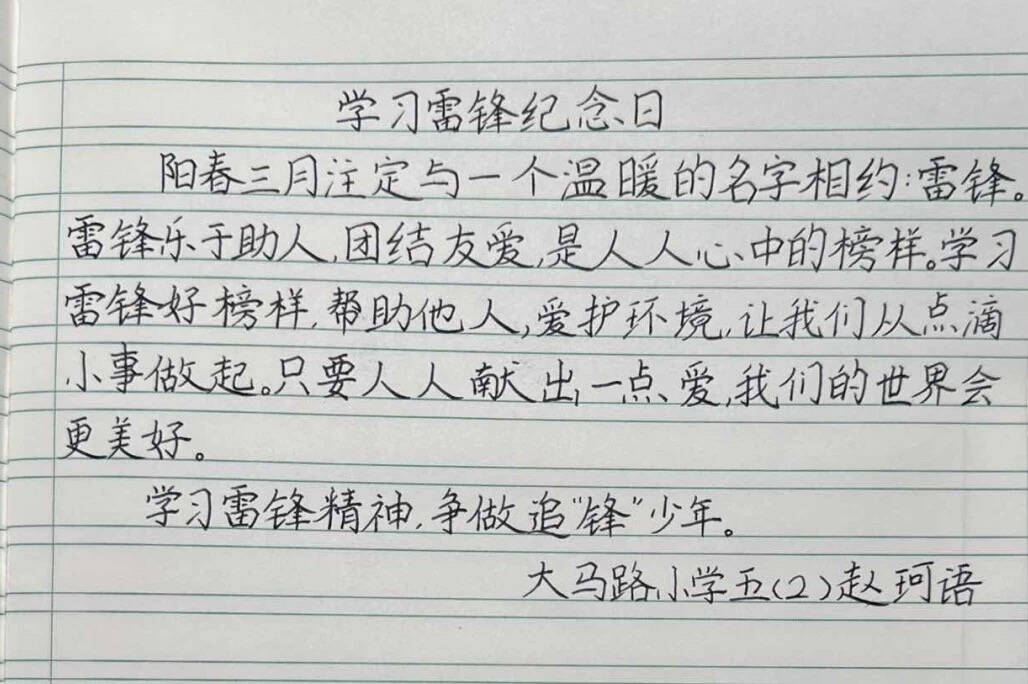 学习雷锋纪念日
阳春三月注定与一个温暖的名字相约:雷锋。
雷锋乐于助人,团结友爱,是人人心中的榜样。学习
雷锋好榜样,帮助他人,爱护环境,让我们从点滴
小事做起。只要人人献出一点爱,我们的世界会
更美好。
学习雷锋精神,争做追“锋”少年。
大马路小学五(2)赵珂语